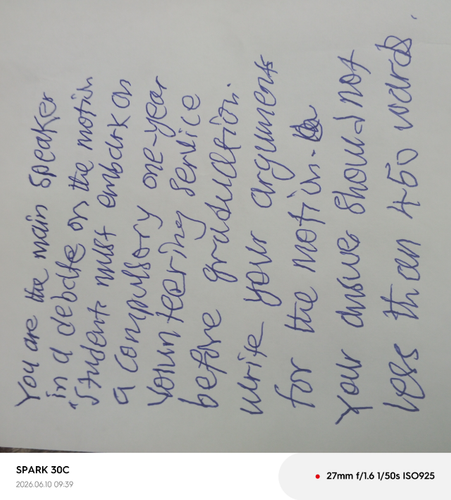 You are the main speaker
in a debate on the motion
"Students must embark on
a compulsory one-year
volunteering service
before graduation.
Write your arguments
for the motion.
Your answer should not
less than 450 words.
SPARK 30C
2026.06.10 09:39
27mm f/1.6 1/50s ISO925